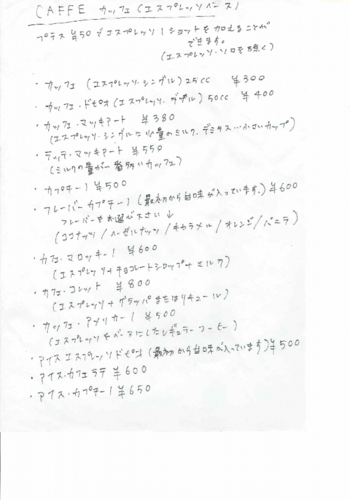 CAFFE カッフェ (エスプレッソベース)
プラス¥50でエスプレッソ1ショットを加えることが
できます。
(エスプレッソ・ソロを除く)
・カッフェ (エスプレッソ・シングル) 25cc ¥300
・カッフェ・ドピオ (エスプレッソ・ダブル) 50cc ¥400
・カッフェ・マッキアート ¥380
(エスプレッソ・シングルに少量のミルク、デミタス…小さいカップ)
・ラッテ・マッキアート ¥550
(ミルクの量が一番多いカッフェ)
・カプチーノ ¥500
・フレーバーカプチーノ (最初から甘味が入っています。) ¥600
フレーバーをお選び下さい↓
(ココナッツ/ヘーゼルナッツ/キャラメル/オレンジ/バニラ)
・カフェ・マロッキーノ ¥600
(エスプレッソ+チョコレートシロップ+ミルク)
・カフェ・コレット ¥800
(エスプレッソ+グラッパまたはリキュール)
・カッフェ・アメリカーノ ¥500
(エスプレッソをベースにしたレギュラーコーヒー)
・アイスエスプレッソドピオ (最初から甘味が入っています) ¥500
・アイス・カフェラテ ¥600
・アイス・カプチーノ ¥650